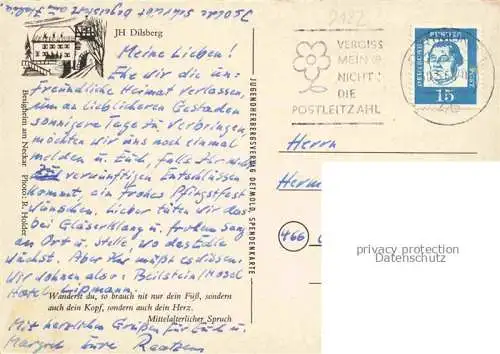 JH Dilsberg
Meine Lieben!
Ehe wir die un-
freundliche Heimat verlassen,
um an lieblicheren Gestaden
sonnigere Tage zu verbringen,
möchten wir uns noch einmal
melden u. Euch, falls Ihr nicht
vernünftigen Entschlüssen
kommt, ein frohes Pfingstfest
wünschen. Lieber täten wir das
bei Gläserklang u. frohem Sang
an Ort u. Stelle, wo das Edle
wächst. Aber Ihr müßt es wissen.
Wir wohnen also: Beilstein/Mosel
Hotel Lipmann.
Wanderst du, so brauch nit nur dein Füß, sondern
auch dein Kopf, sondern auch dein Herz.
Mittelalterlicher Spruch
Mit herzlichen Grüßen für Euch u.
Margret Eure
Besigheim am Neckar Photo: R. Holder
JUGENDHERBERGSVERLAG DETMOLD, SPENDENKARTE
2182
VERGISS
MEIN
NICHT!
DIE
POSTLEITZAHL
DEUTSCHE BUNDESPOST
15
Herrn
Herm
466
privacy protection
Datenschutz